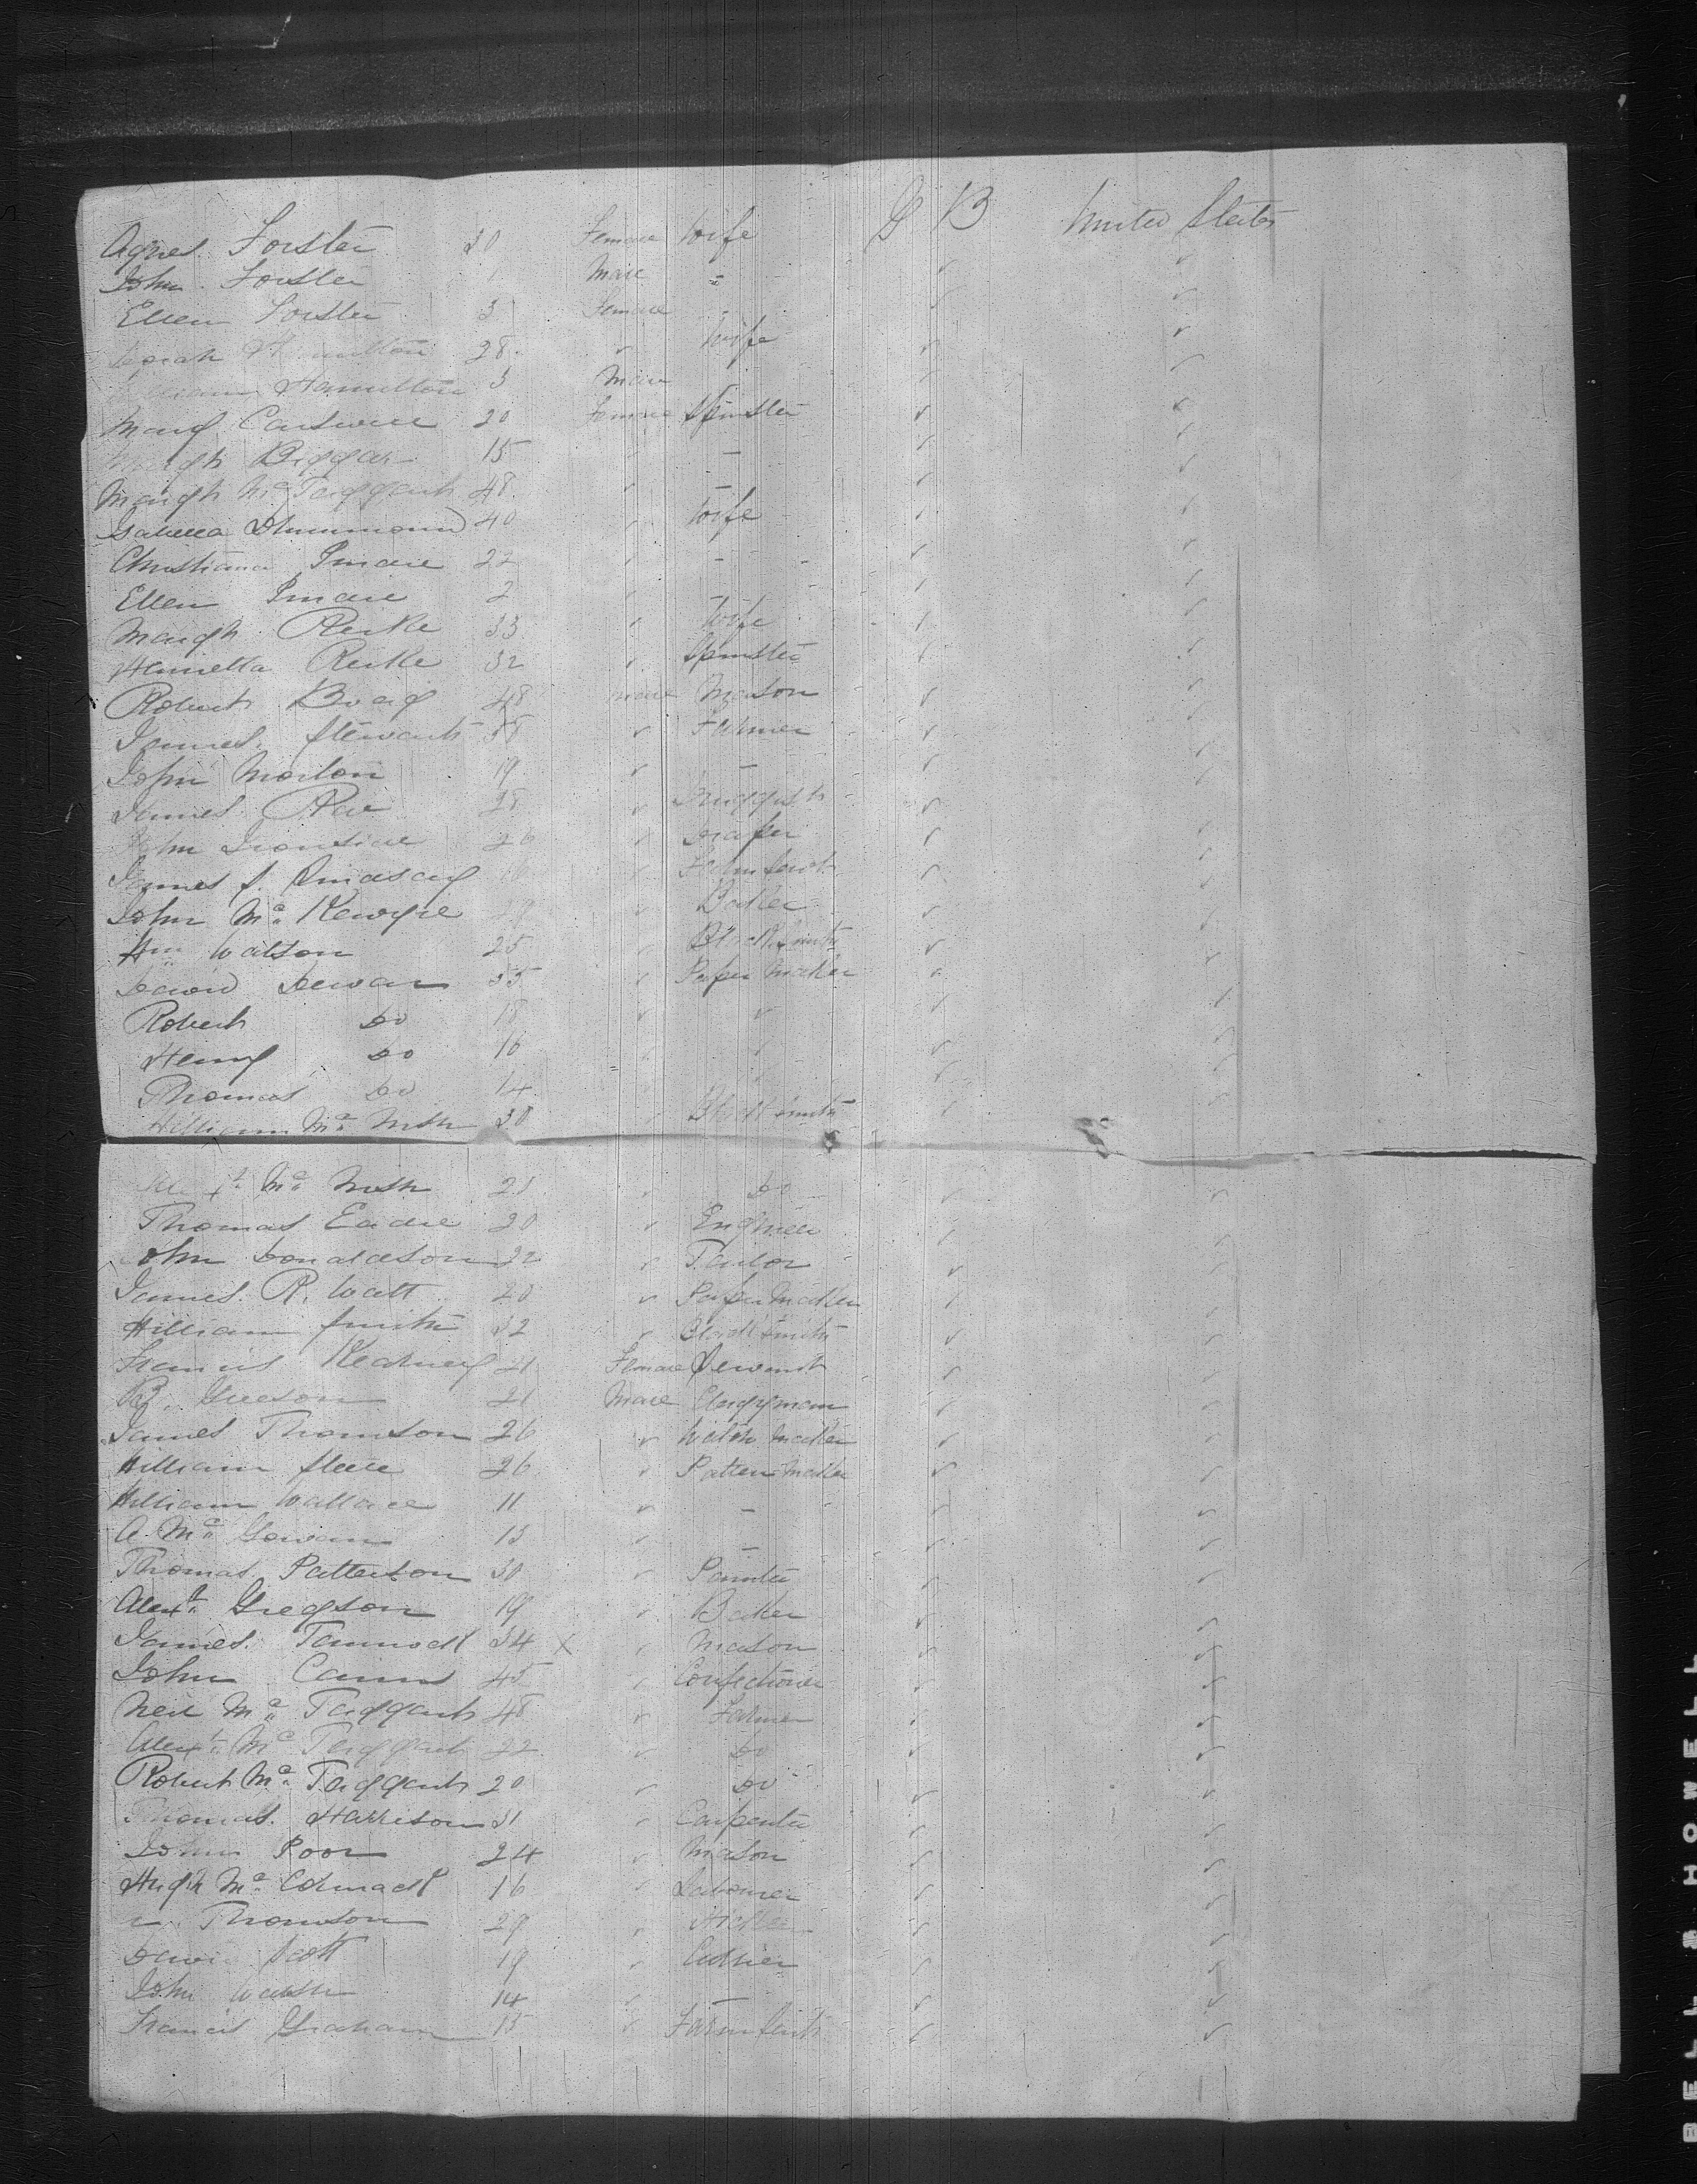 Agnes Forster 30 Female Wife G B United States
John Forster Male "
Ellen Forster 3 Female -
Sarah Hamilton 28 ✓ Wife ✓ ✓
William Hamilton 3 Male - ✓ ✓
Mary Carswell 20 Female Spinster ✓ ✓
Margt Biggar 15 ✓ - ✓ ✓
Margt Mc Taggart 48 ✓ - ✓ ✓
Isabella Drummond 40 ✓ Wife ✓ ✓
Christiana Imrie 22 ✓ - ✓ ✓
Ellen Imrie 2 ✓ - ✓ ✓
Margt Reike 33 ✓ Wife ✓ ✓
Henrietta Reike 32 ✓ Spinster ✓ ✓
Robert Boag 48 Male Mason ✓ ✓
James Stewart 38 ✓ Farmer ✓ ✓
John Morton 19 ✓ - ✓ ✓
James Rae 28 ✓ Druggist ✓ ✓
John Ironside 20 ✓ Draper ✓ ✓
James S. Lindsay 16 ✓ Farm Servt ✓ ✓
John Mc Kenzie ✓ Baker ✓ ✓
Wm Watson 25 ✓ Blacksmith ✓ ✓
David Dewar 35 ✓ Paper Maker ✓ ✓
Robert Do 18 ✓ ✓ ✓ ✓
Henry Do 16 ✓ ✓ ✓ ✓
Thomas Do 14 ✓ ✓ ✓
William Mc Nish 30 ✓ Blacksmith ✓ ✓
Alexr Mc Nish 23 ✓ Do ✓ ✓
Thomas Eadie 20 ✓ Engineer ✓ ✓
John Donaldson 22 ✓ Tailor ✓ ✓
James R. Watt 20 ✓ Paper Maker ✓ ✓
William Smith 32 ✓ Blacksmith ✓ ✓
Francis Kearney 21 Female Servant ✓ ✓
Gleeson 21 Male Clergyman ✓ ✓
James Thomson 26 ✓ Watch Maker ✓ ✓
William Steele 26 ✓ Pattern Maker ✓ ✓
William Wallace 11 ✓ - ✓ ✓
A. Mc Gowan 13 ✓ - ✓ ✓
Thomas Patterson 30 ✓ Painter ✓ ✓
Alexr Gregson 19 ✓ Baker ✓ ✓
James Tannock 34 X ✓ Mason ✓ ✓
John Cairns 45 ✓ Confectioner ✓ ✓
Neil Mc Taggart 48 ✓ Farmer ✓ ✓
Alexr Mc Taggart 22 ✓ Do ✓ ✓
Robert Mc Taggart 20 ✓ Do ✓ ✓
Thomas Harrison 31 ✓ Carpenter ✓ ✓
John Poor 24 ✓ Mason ✓ ✓
Hugh Mc Cormack 16 ✓ Labourer ✓ ✓
Thomson 29 ✓ ✓ ✓
David Scott 19 ✓ Currier ✓ ✓
John Walsh 14 ✓ - ✓ ✓
Francis Graham 15 ✓ Farm Servt ✓ ✓
BELL & HOWELL